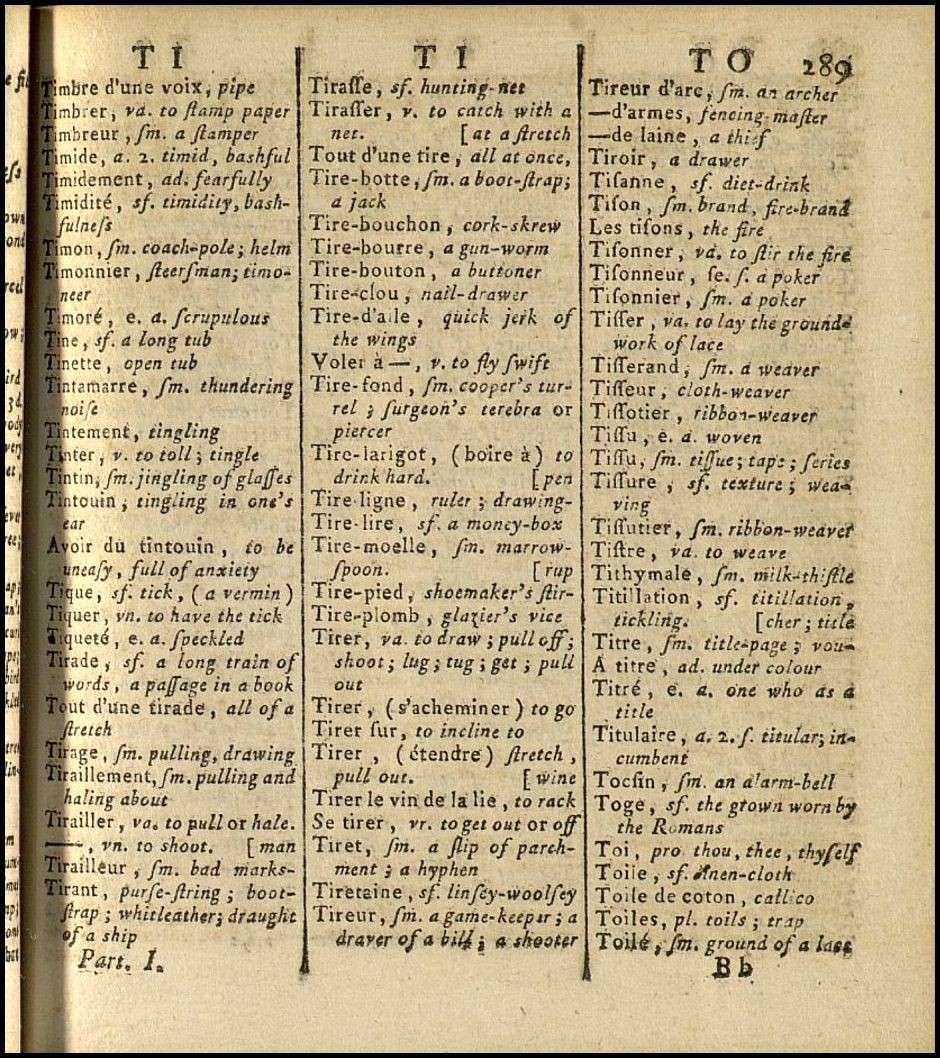 TI
Timbre d'une voix, pipe
Timbrer, va. to ſtamp paper
Timbreur, ſm. a ſtamper
Timide, a. 2. timid, baſhful
Timidement, ad. fearfully
Timidité, sf. timidity, baſh-
fulneſs
Timon, ſm. coach-pole; helm
Timonnier, ſteerſman; timo-
neer
Timoré, e. a. ſcrupulous
Tine, sf. a long tub
Tinette, open tub
Tintamarre, ſm. thundering
noiſe
Tintement, tingling
Tinter, v. to toll; tingle
Tintin, ſm. jingling of glaſſes
Tintouin, tingling in one's
ear
Avoir du tintouin, to be
uneaſy, full of anxiety
Tique, sf. tick, (a vermin)
Tiquer, vn. to have the tick
Tiqueté, e. a. ſpeckled
Tirade, sf. a long train of
words, a paſſage in a book
Tout d'une tirade, all of a
ſtretch
Tirage, ſm. pulling, drawing
Tiraillement, ſm. pulling and
haling about
Tirailler, va. to pull or hale.
—, vn. to shoot. [man
Tirailleur, ſm. bad marks-
Tirant, purſe-ſtring; boot-
ſtrap; whitleather; draught
of a ship
Part. I.
TI
Tiraſſe, sf. hunting-net
Tiraſſer, v. to catch with a
net. [at a ſtretch
Tout d'une tire, all at once,
Tire-botte, ſm. a boot-ſtrap;
a jack
Tire-bouchon, cork-skrew
Tire-bourre, a gun-worm
Tire-bouton, a buttoner
Tire-clou, nail-drawer
Tire-d'aile, quick jerk of
the wings
Voler à —, v. to fly ſwift
Tire-fond, ſm. cooper's tur-
rel; ſurgeon's terebra or
piercer
Tire-larigot, (boire à) to
drink hard. [pen
Tire-ligne, ruler; drawing-
Tire-lire, sf. a money-box
Tire-moelle, ſm. marrow-
ſpoon. [rup
Tire-pied, shoemaker's ſtir-
Tire-plomb, glazier's vice
Tirer, va. to draw; pull off;
shoot; lug; tug; get; pull
out
Tirer, (s'acheminer) to go
Tirer ſur, to incline to
Tirer, (étendre) ſtretch,
pull out. [wine
Tirer le vin de la lie, to rack
Se tirer, vr. to get out or off
Tiret, ſm. a ſlip of parch-
ment; a hyphen
Tiretaine, sf. linſey-woolſey
Tireur, ſm. a game-keeper; a
draver of a bill; a shooter
TO 289
Tireur d'arc, ſm. an archer
—d'armes, fencing-maſter
—de laine, a thief
Tiroir, a drawer
Tiſanne, sf. diet-drink
Tiſon, ſm. brand, fire-brand
Les tiſons, the fire
Tiſonner, va. to ſtir the fire
Tiſonneur, ſe. ſ. a poker
Tiſonnier, ſm. a poker
Tiſſer, va. to lay the ground-
work of lace
Tiſſerand, ſm. a weaver
Tiſſeur, cloth-weaver
Tiſſotier, ribbon-weaver
Tiſſu, e. a. woven
Tiſſu, ſm. tiſſue; tape; ſeries
Tiſſure, sf. texture; wea-
ving
Tiſſutier, ſm. ribbon-weaver
Tiſtre, va. to weave
Tithymale, ſm. milk-thiſtle
Titillation, sf. titillation,
tickling. [cher; title
Titre, ſm. title-page; vou-
A titre, ad. under colour
Titré, e. a. one who as a
title
Titulaire, a. 2. ſ. titular; in-
cumbent
Tocſin, ſm. an alarm-bell
Toge, sf. the gtown worn by
the Romans
Toi, pro thou, thee, thyſelf
Toile, sf. linen-cloth
Toile de coton, callico
Toiles, pl. toils; trap
Toilé, ſm. ground of a lace
Bb